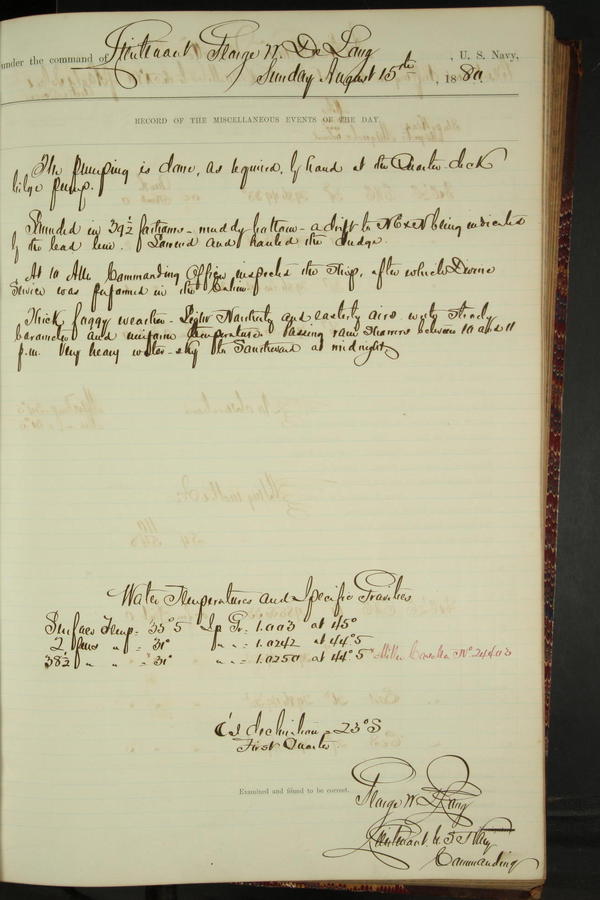 under the command of Lieutenant George W. De Long, U. S. Navy,
Sunday August 15th, 1880.
RECORD OF THE MISCELLANEOUS EVENTS OF THE DAY
The pumping is done, as required, by hand at the Quarter-deck
bilge pump.
Sounded in 39½ fathoms - muddy bottom - a drift to NExN being indicated
by the lead line. Lowered and hauled the dredge.
At 10 AM Commanding Officer inspected the Ship, after which Divine
Service was performed in the Cabin.
Thick foggy weather - Light Northerly and easterly airs with steady
barometer and uniform temperature. Passing rain showers between 10 and 11
p.m. Very heavy water-sky to Southward at midnight
Water Temperatures and Specific Gravities
Surface Temp = 33°5 Sp Gr = 1.003 at 45°
2 fms " " = 31° " " = 1.0242 at 44°5
38½ " " = 31° " " = 1.0250 at 44°5 Miller Casella No. 24403
☾'s declination = 23° S
First Quarter
Examined and found to be correct.
George W. De Long
Lieutenant U.S. Navy
Commanding